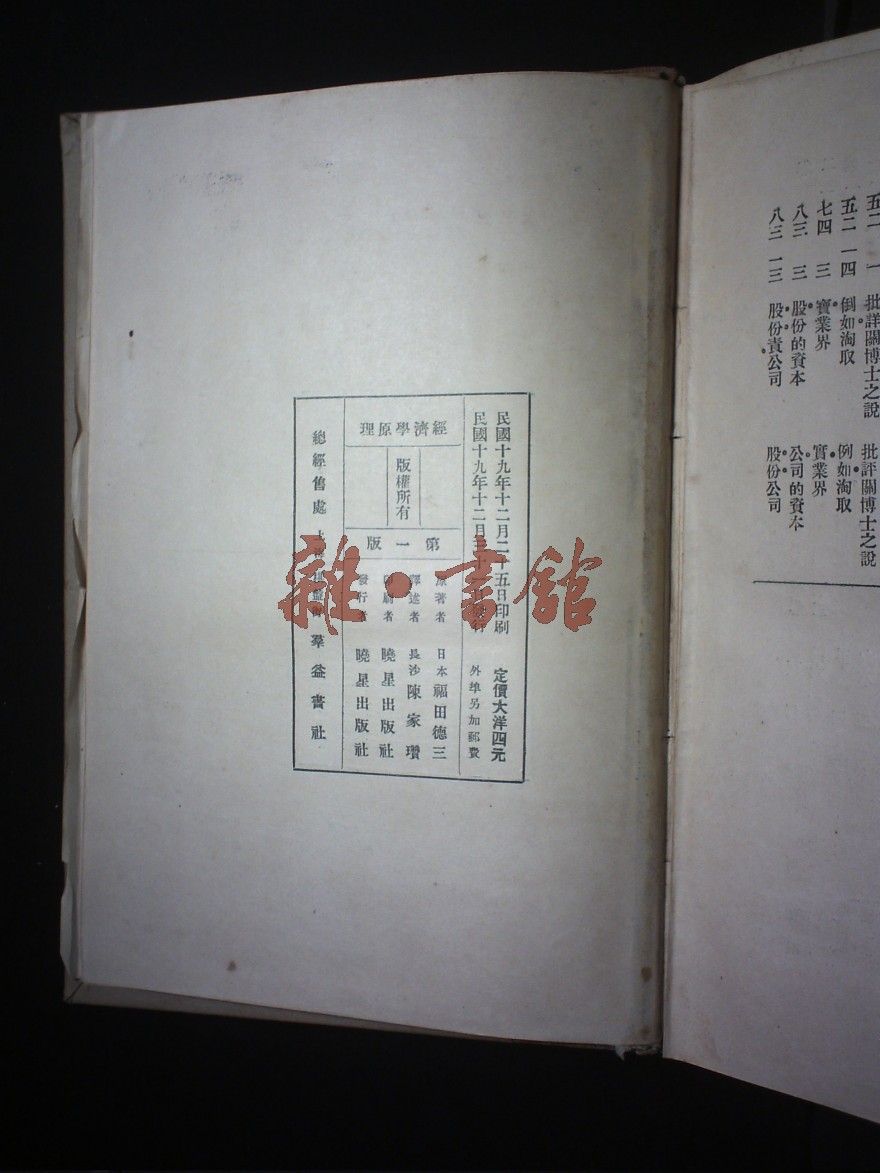 五二 一 批詳關博士之說 批評關博士之說
五二 一四 倒如淘取 例如淘取
七四 三 寶業界 實業界
八三 三 股份的資本 公司的資本
八三 一三 股份責公司 股份公司
民國十九年十二月二十五日印刷
民國十九年十二月
定價大洋四元
外埠另加郵費
經濟學原理
版權所有
第一版
原著者 日本福田德三
譯述者 長沙陳家瓚
印刷者 曉星出版社
發行者 曉星出版社
總經售處
羣益書社
雜·書館